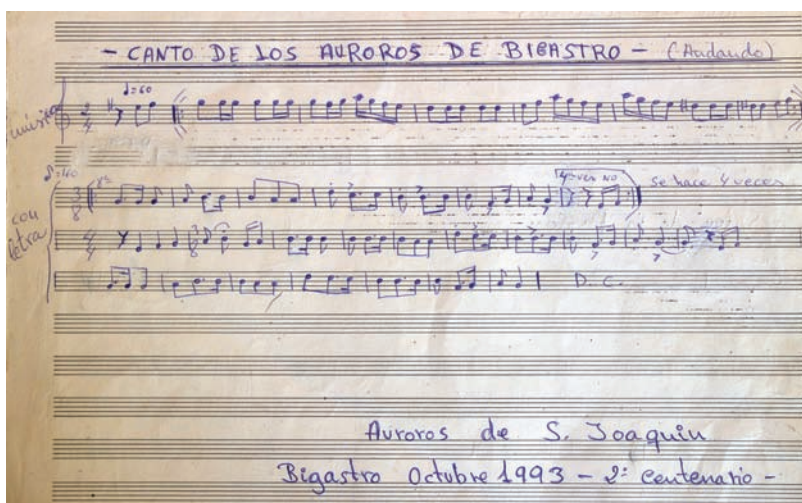 - CANTO DE LOS AUROROS DE BIGASTRO - (Andando)
♩=60
música
2/4
♪=160
4ª vez NO
Se hace 4 veces
con letra
3/8
D.C.
Auroros de S. Joaquin
Bigastro Octubre 1993 - 2º Centenario -